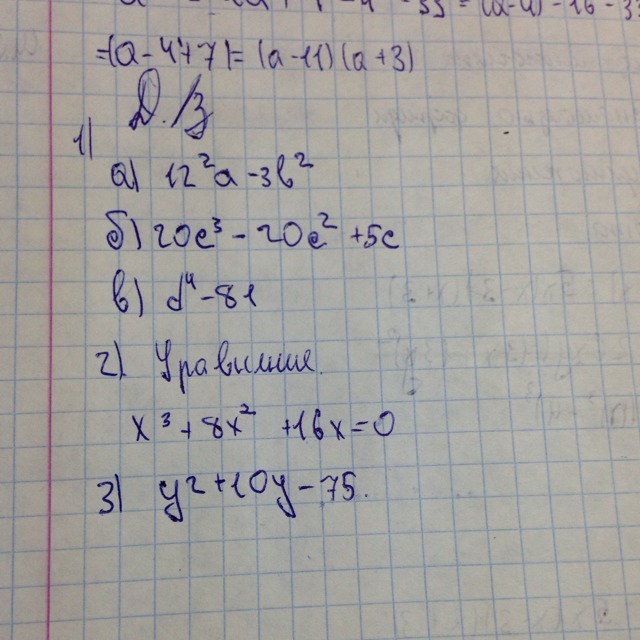 =(a-4+7)= (a-11)(a+3)
Д./З
1)
а) 12²a-3b²
б) 20c³-20c²+5c
в) d⁴-81
2) Уравнение.
x³+8x²+16x=0
3) y²+10y-75.